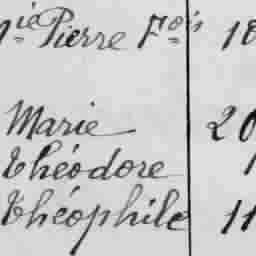 Pierre Fois 18
Marie 20
Théodore 1
Théophile 11